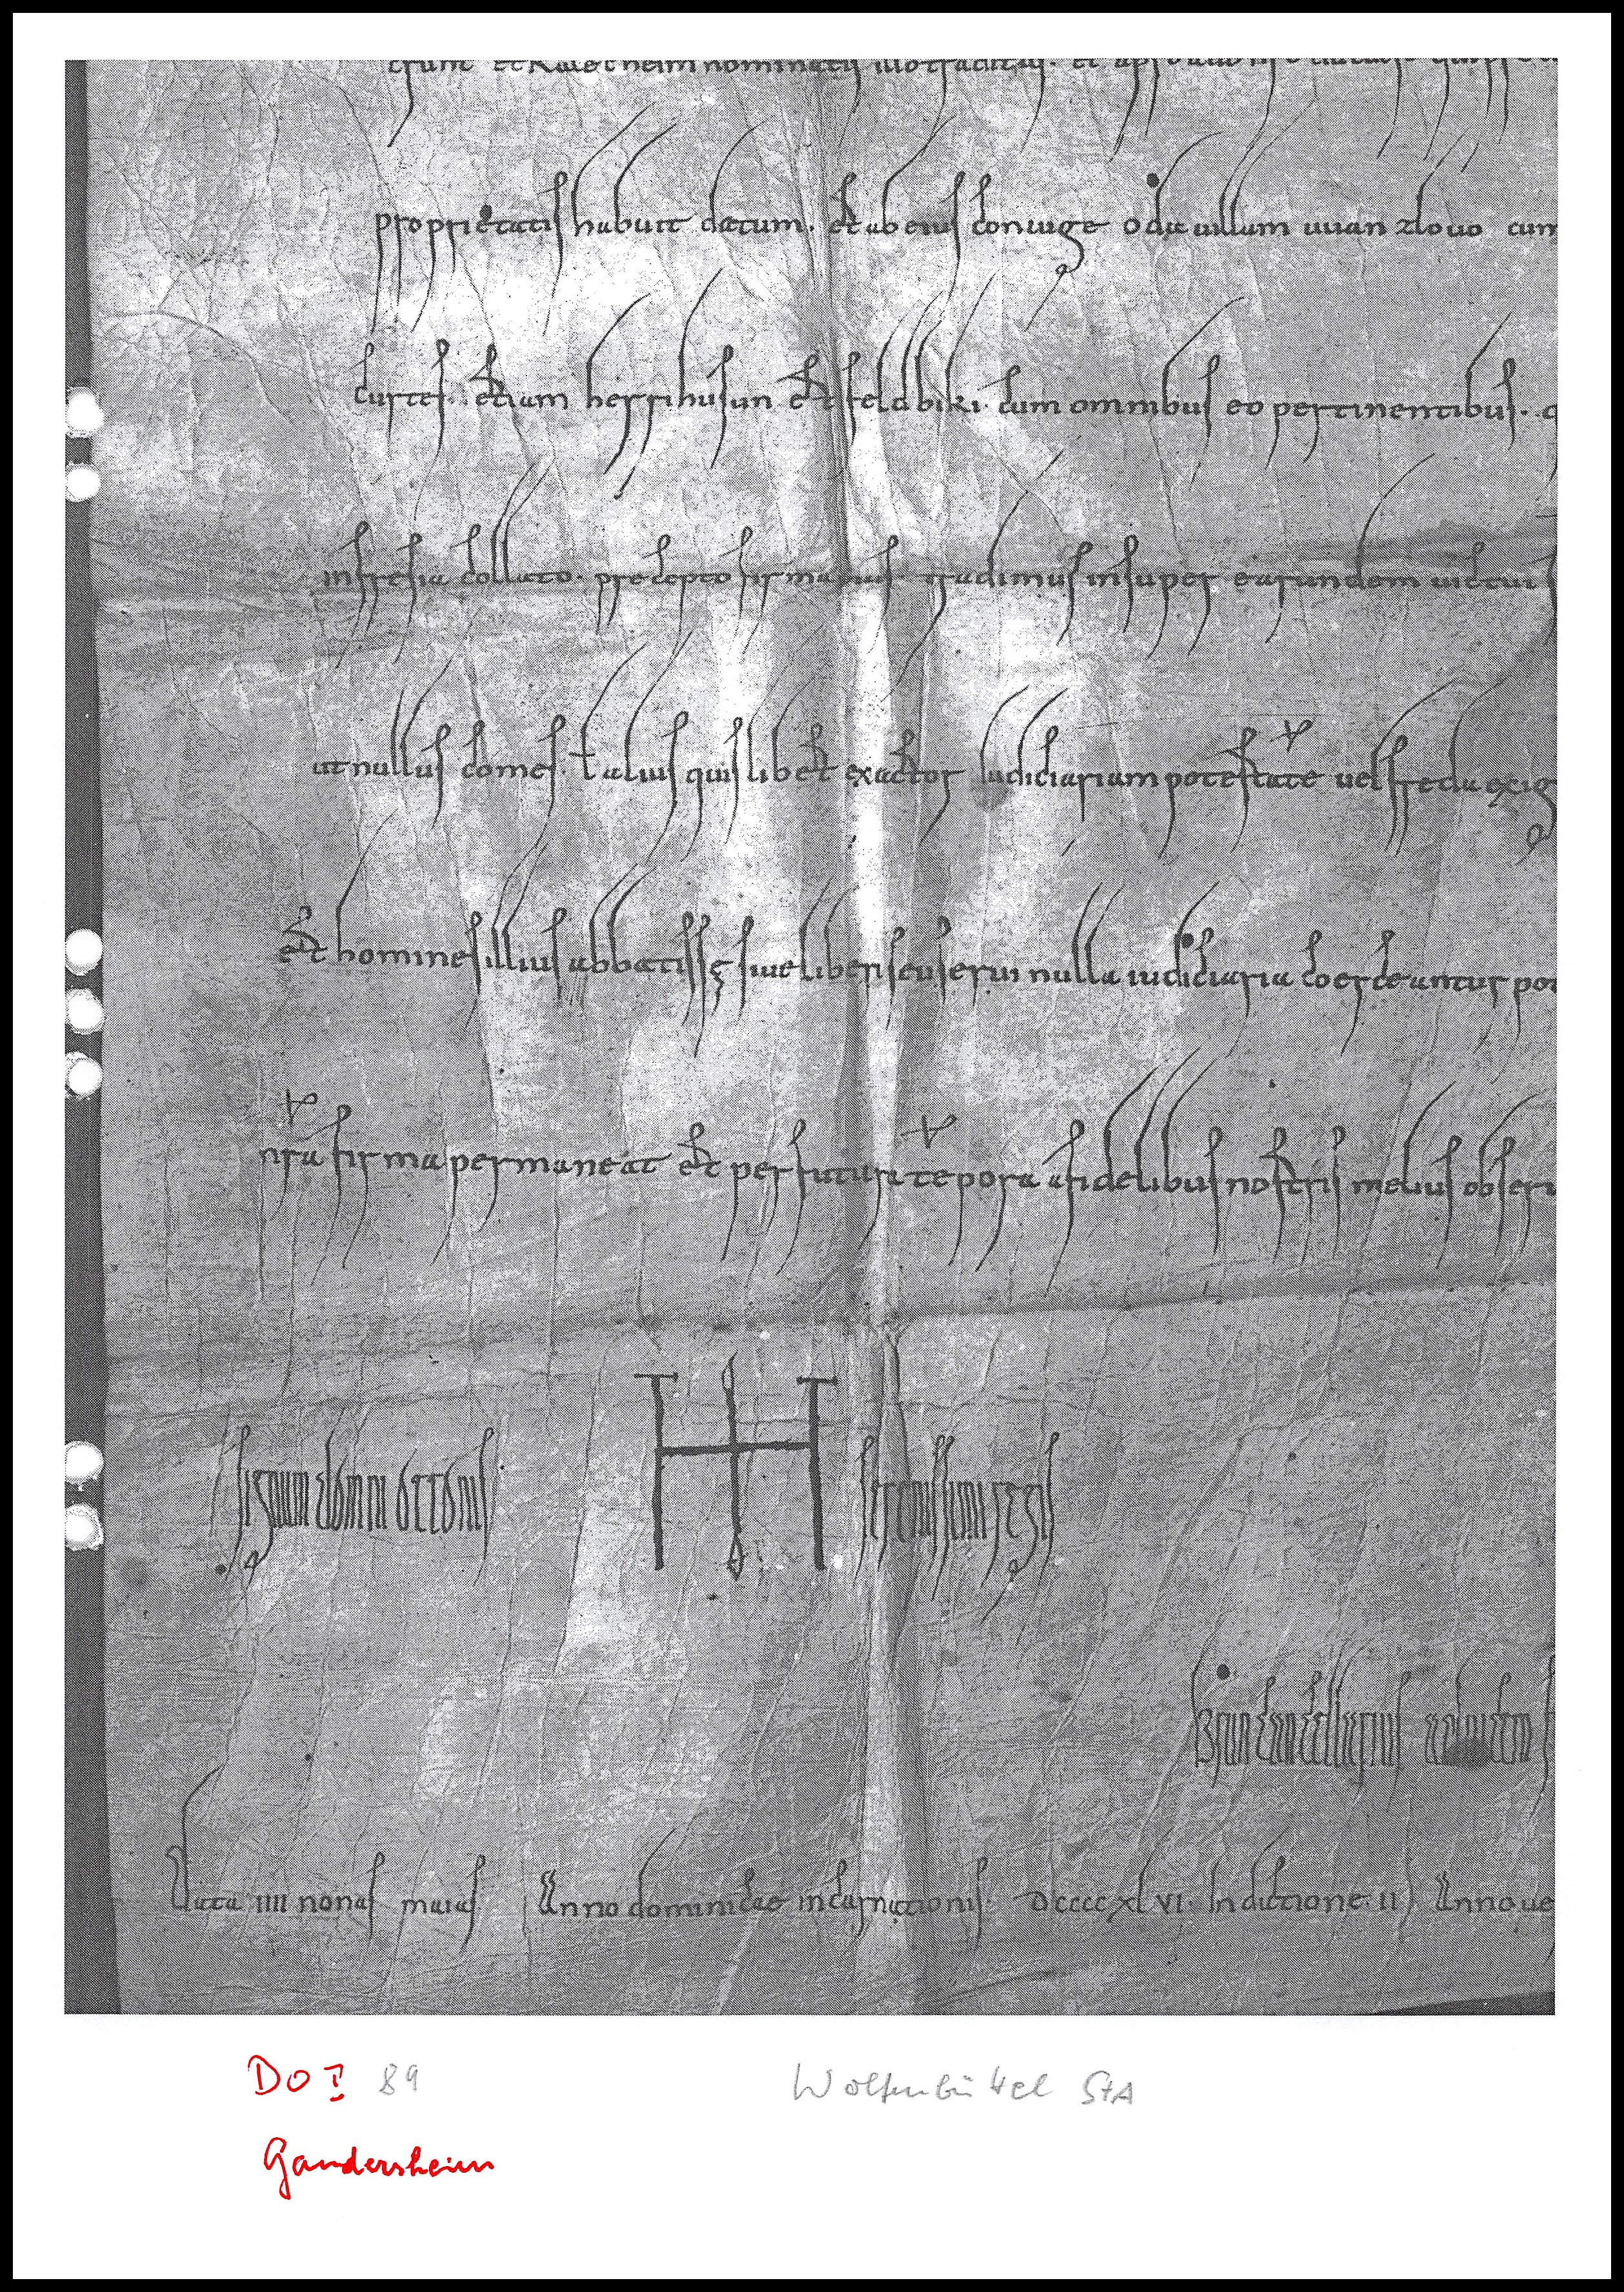 nominatis illo traditas. et
proprietatis habuit datum. et ab eius coniuge oda uillam uuanzlouo cum
curtes. etiam herrihusun et feldbiki. cum omnibus eo pertinentibus.
in fresia collato. precepto firmamus tradimus insuper earundem uictui
ut nullus comes. t alius quislibet exactor iudiciariam potestate uel freda exig
et homines illius abbatissę siue liberi seu serui nulla iudiciaria coerceantur pot
nra firma permaneat et per futuri tepora a fidelibus nostris melius obseru
Signum domni ottonis serenissimi regis
Brun cancellarius aduicem
Data IIII nonas maias Anno dominicae incarnationis DCCCCXLVI. Indictione. II Anno ue
DO I 89 Wolfenbüttel StA
Gandersheim